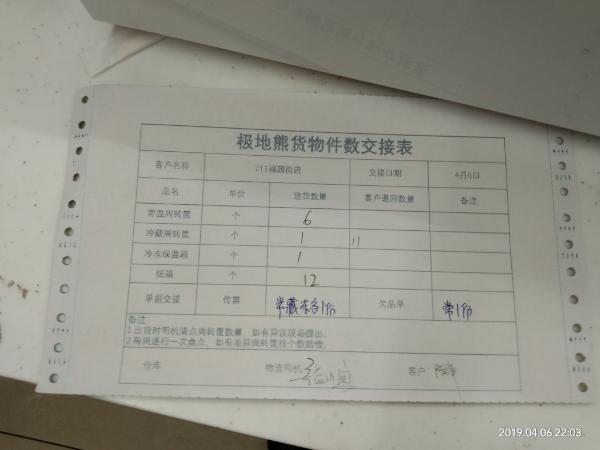 极地熊货物件数交接表
客户名称 711福园街店 交接日期 4月6日
品名 单位 送货数量 客户退回数量 备注
常温周转筐 个 6
冷藏周转筐 个 1 11
冷冻保温箱 个 1
纸箱 个 12
单据交接 传票 常藏冻各1份 欠品单 常1份
备注
1.出货时司机清点周转筐数量，如有异议现场提出。
2.每周进行一次盘点，如有差异周转筐按个数赔偿。
仓库 物流司机 客户
2019.04.06 22:03